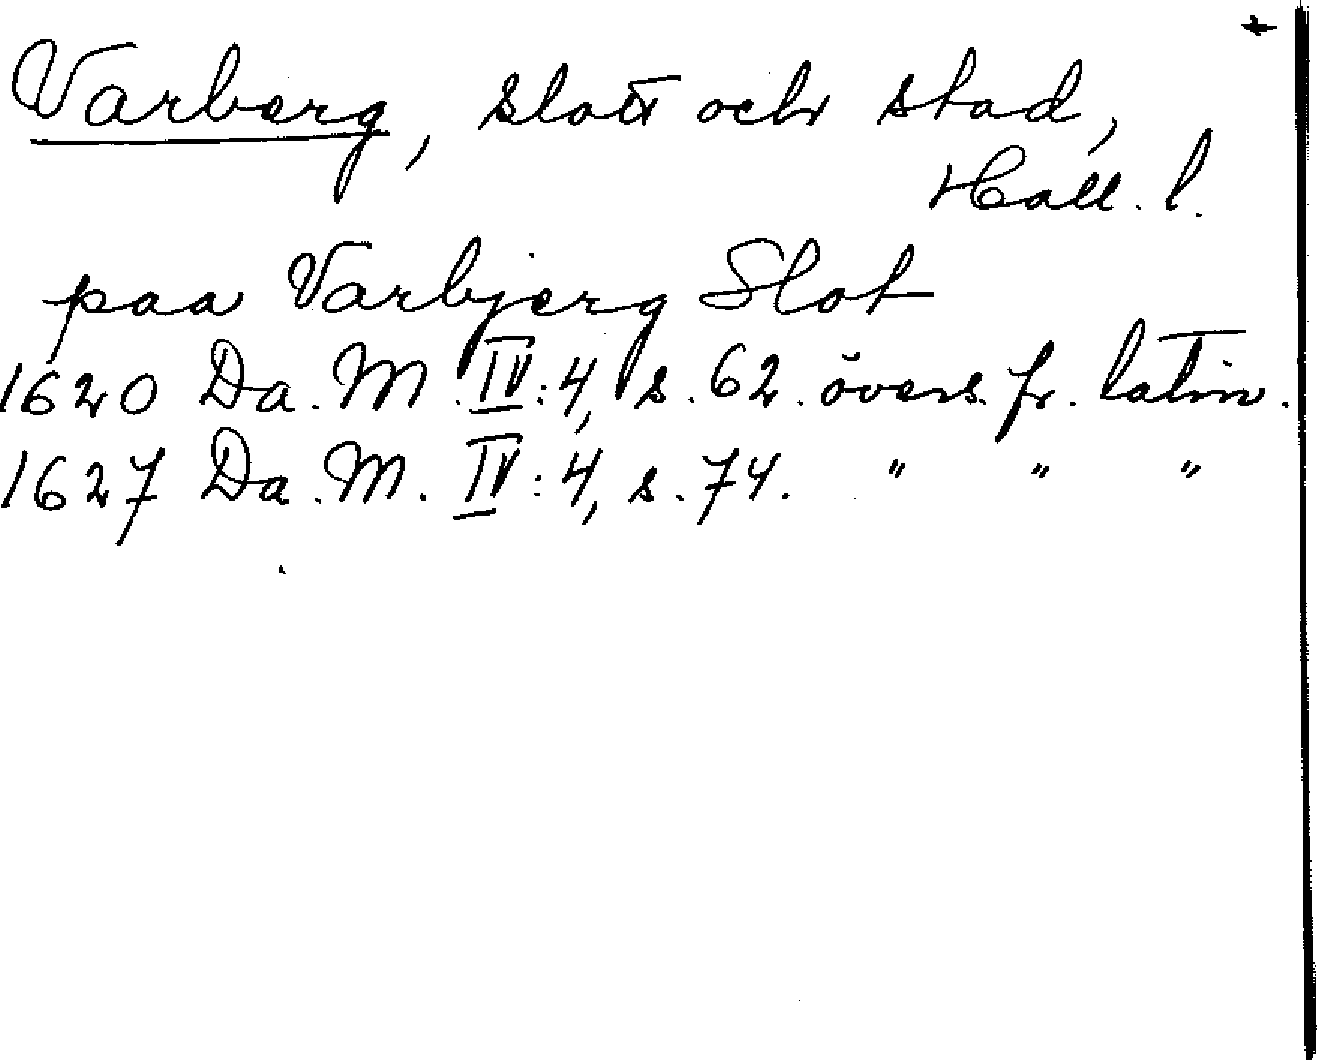 +
Varberg, slott och stad,
Hall. l.
paa Varbjerg Slot
1620 Da. M. IV:4, s. 62. övers. fr. latin.
1627 Da. M. IV:4, s. 74. " " "